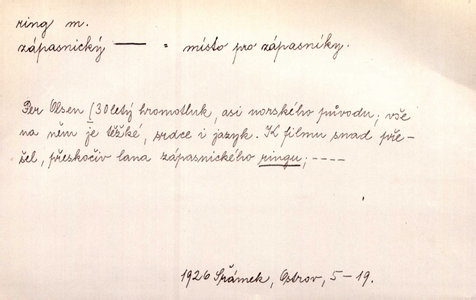 ring m.
zápasnický —— = místo pro zápasníky.
Per Olsen (30letý hromotluk, asi norského původu; vše
na něm je těžké, srdce i jazyk. K filmu snad pře-
šel, přeskočiv lana zápasnického ringu; ----
1926 Šrámek, Ostrov, 5-19.